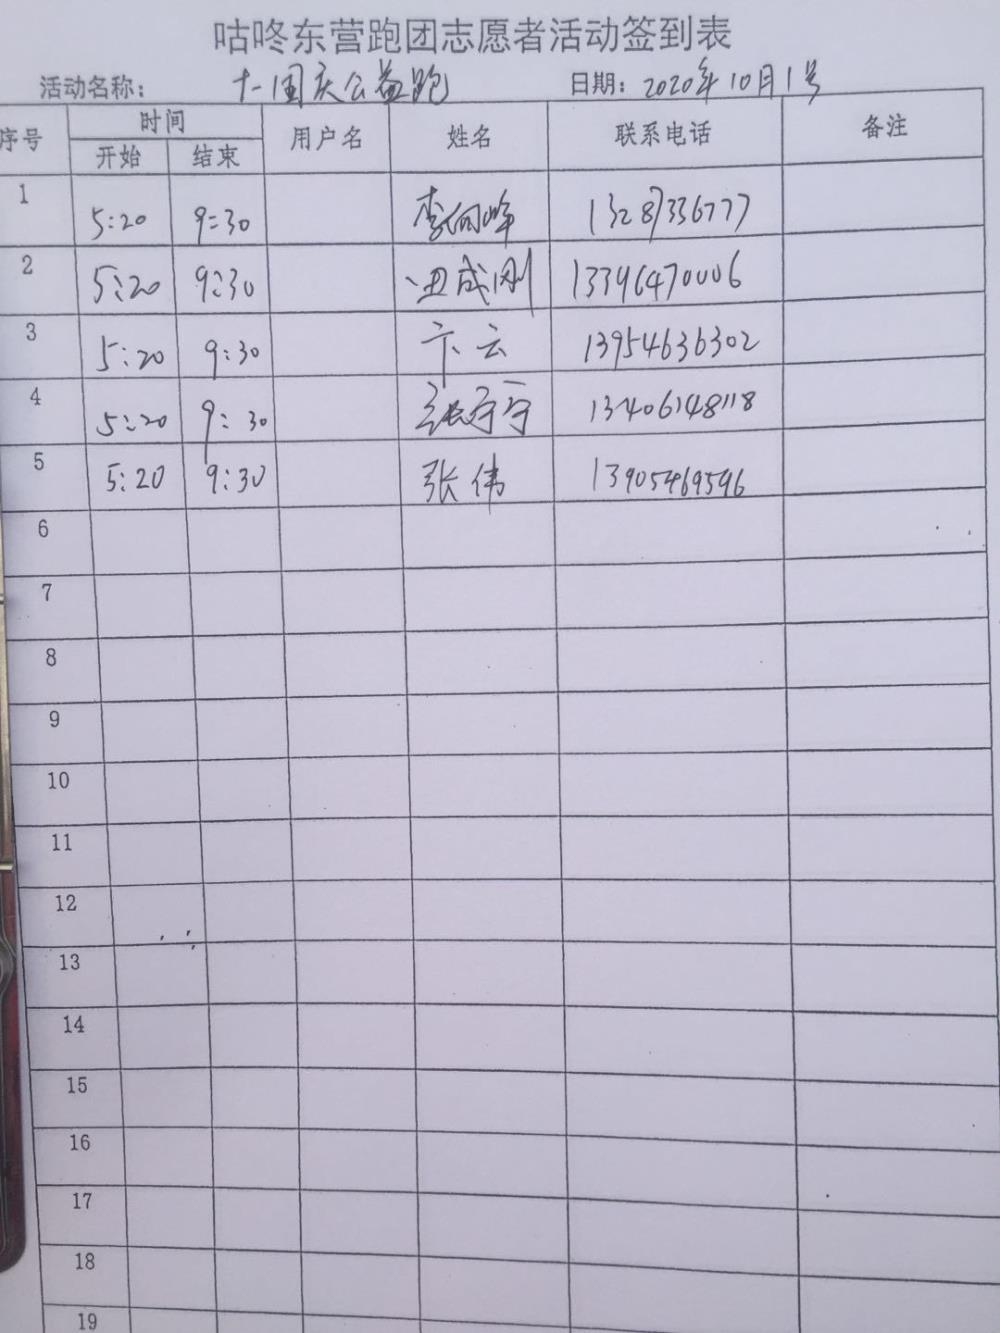 咕咚东营跑团志愿者活动签到表
活动名称： 十一国庆公益跑 日期：2020年10月1号
序号 时间 用户名 姓名 联系电话 备注
开始 结束
1 5:20 9:30 李向峰 13287336777
2 5:20 9:30 成刚 13396470006
3 5:20 9:30 卞云 13954636302
4 5:20 9:30 张守宁 13406148118
5 5:20 9:30 张伟 13905469596
6
7
8
9
10
11
12
13
14
15
16
17
18
19